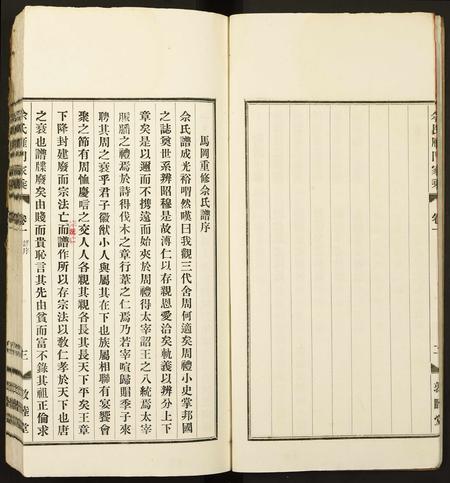 馬岡重修佘氏譜序
佘氏譜成光裕喟然嘆曰我觀三代舍周何適矣周禮小史掌邦國
之誌奠世系辨昭穆是故溥仁以存親恩愛洽矣執義以辨分上下
章矣是以邇而不攜遠而始夾於周禮得太宰詔王之八統焉太宰
脤膰之禮焉於詩得伐木之章行葦之仁焉乃若宰咺歸賵季子來
聘其周之衰乎君子徽猷小人與屬其在下也族屬相聯有宴饗會
聚之節有周恤慶唁之交人人各親其親各長其長天下平矣王章
下降封建廢而宗法亡而譜作所以存宗法以敎仁孝於天下也唐
之衰也譜牒廢矣由賤而貴恥言其先由貧而富不錄其祖正倫求
佘氏雁門家乘
卷一
三
敦睦堂